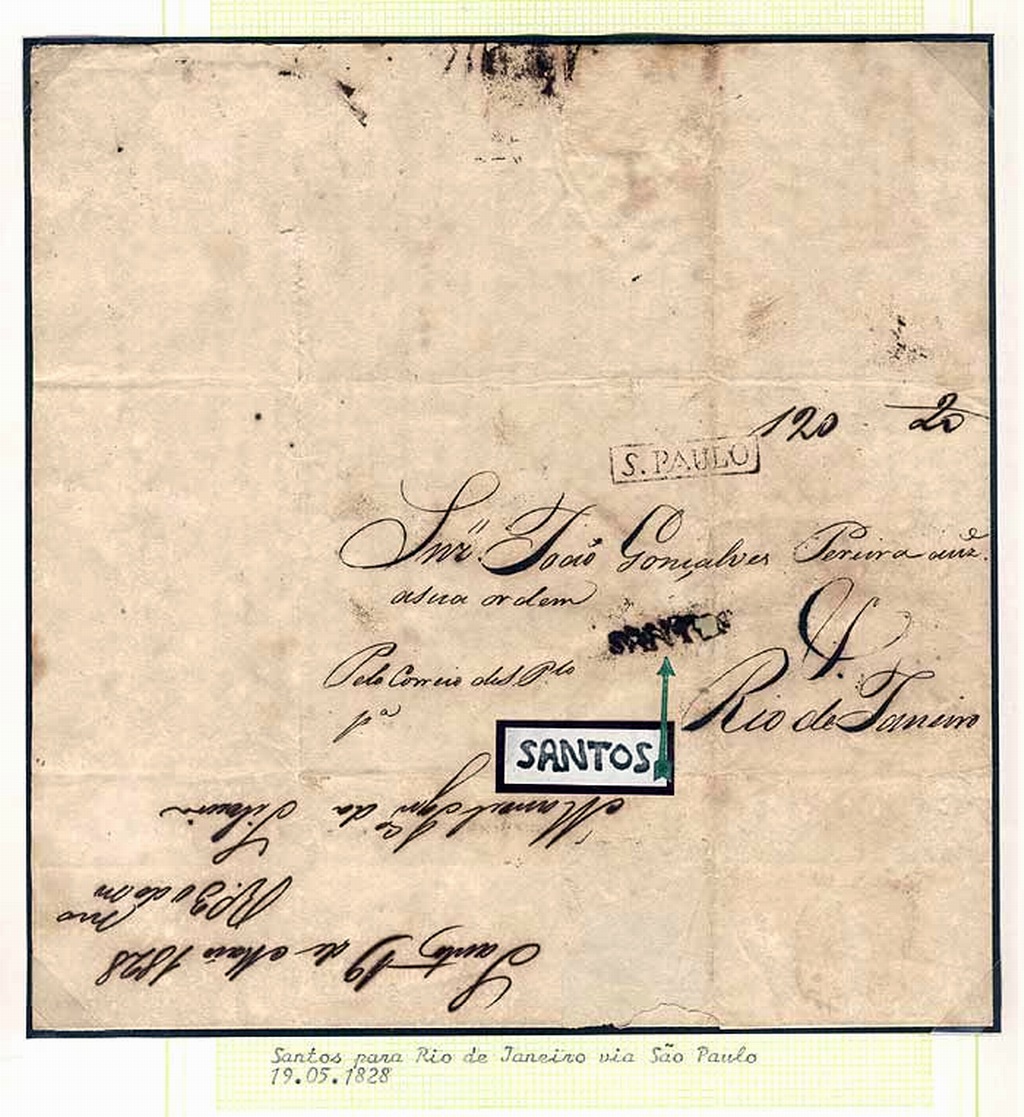 120 20
S. PAULO
Snr. João Gonçalves Pereira auz.e
a sua ordem
SANTOS
Pelo Correio de S. Plo
1ª
Rio de Janeiro
SANTOS
Santos 19 de Maio 1828
Rp. 30 do
Manuel da Silveira
Santos para Rio de Janeiro via São Paulo
19.05.1828